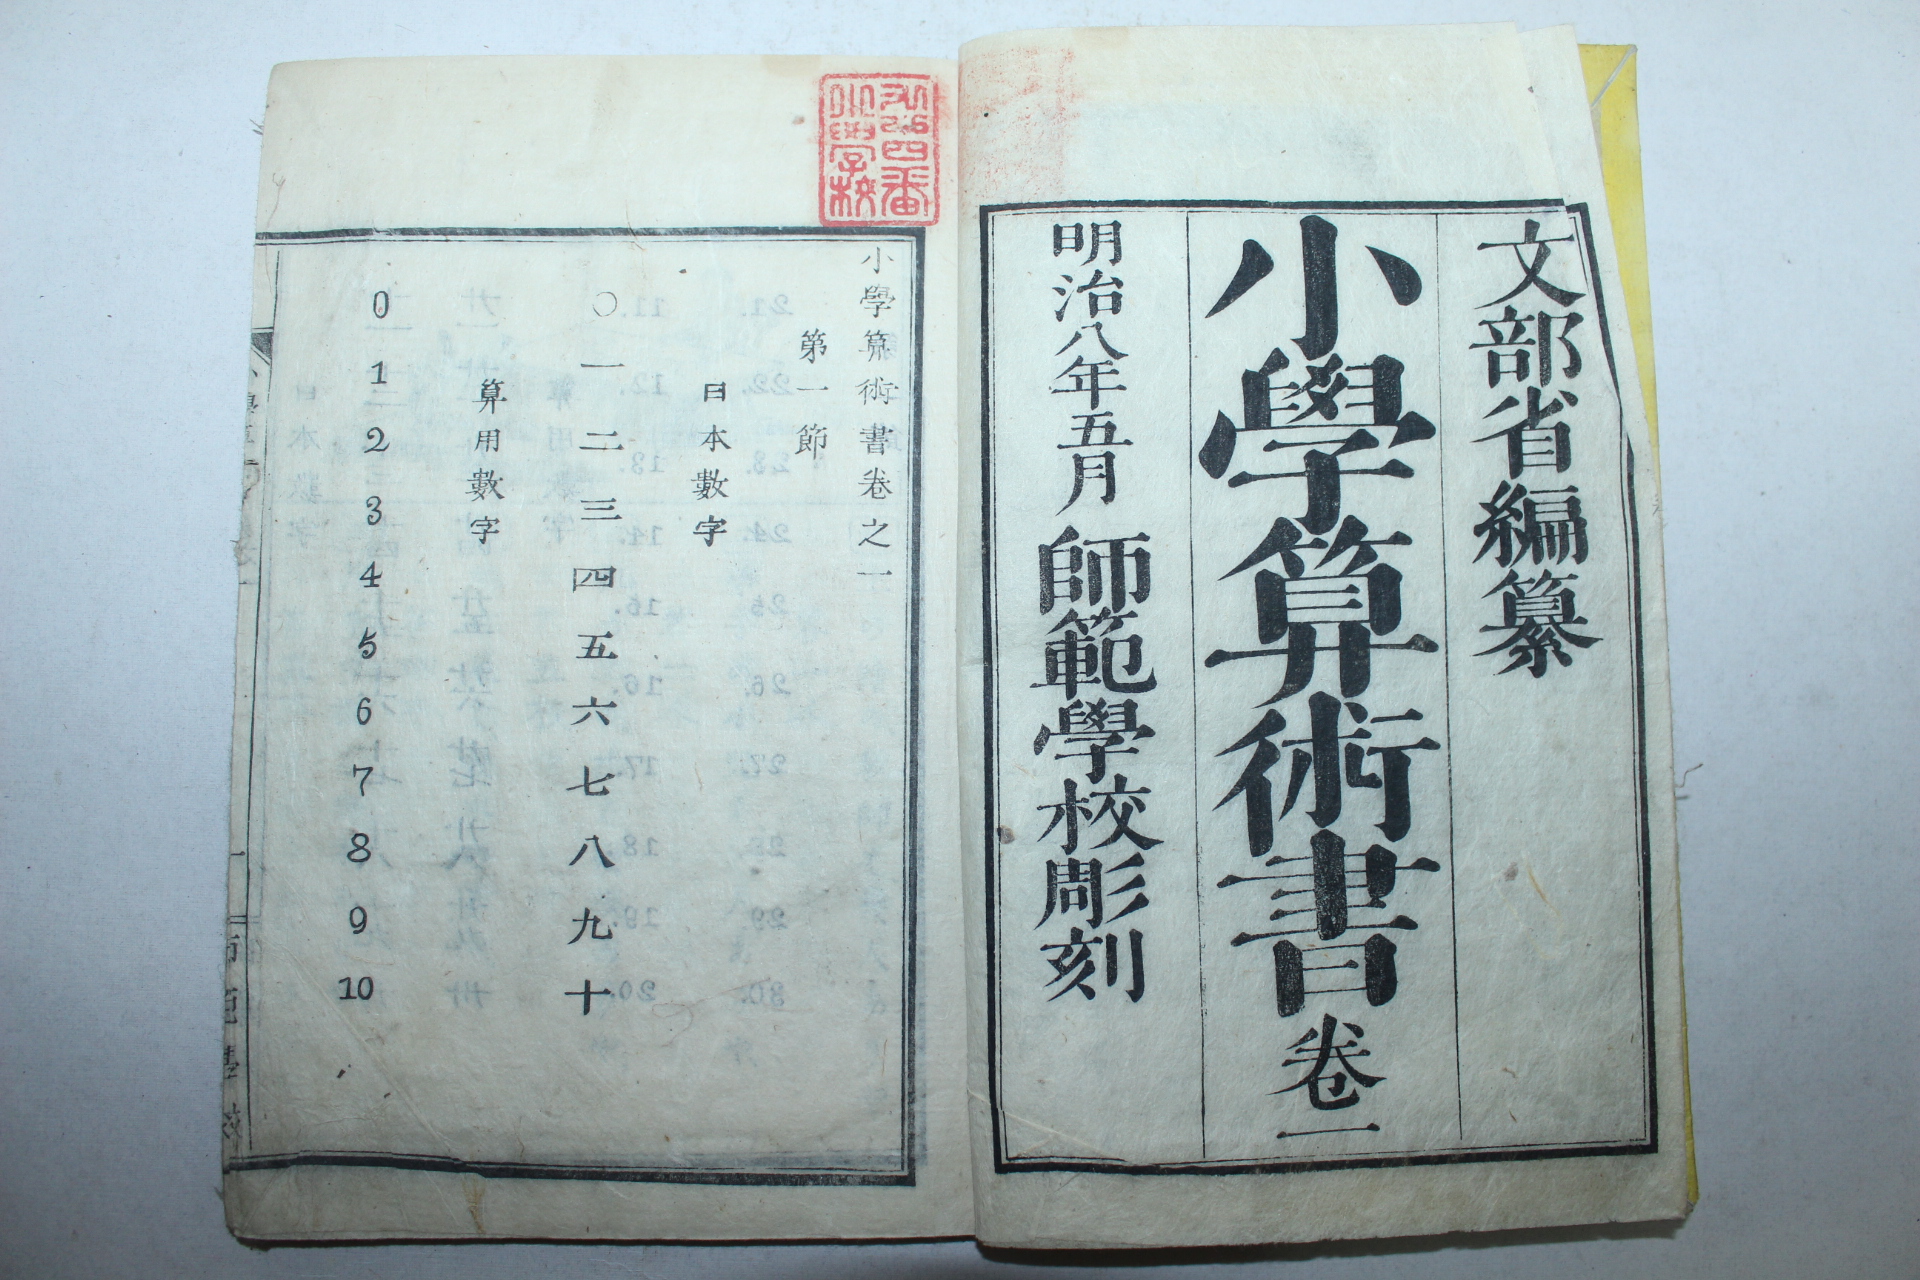 文部省編纂
小學算術書卷一
明治八年五月 師範學校彫刻
小學筭術書卷之一
第一節
日本數字
〇 一 二 三 四 五 六 七 八 九 十
算用數字
0 1 2 3 4 5 6 7 8 9 10
四番
小學校